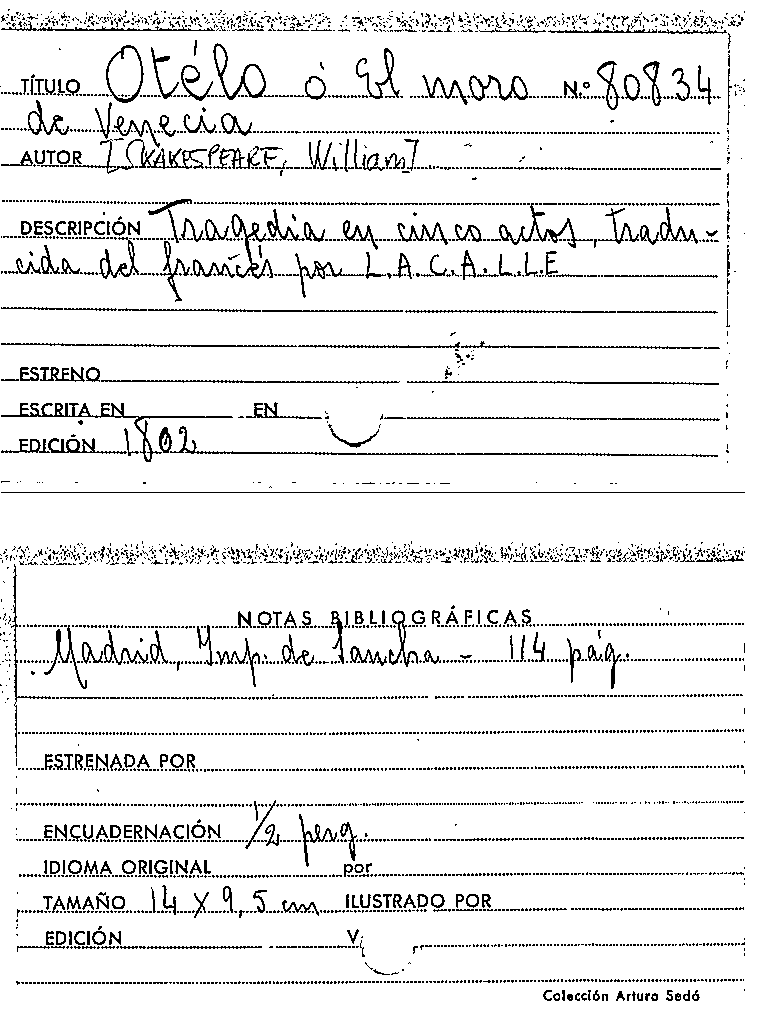 TÍTULO Otélo ó El moro N.º 80834
de Venecia
AUTOR [SHAKESPEARE, William]
DESCRIPCIÓN Tragedia en cinco actos, tradu-
cida del francés por L.A.C.A.L.L.E
ESTRENO
ESCRITA EN EN
EDICIÓN 1802
NOTAS BIBLIOGRÁFICAS
Madrid, Imp. de Sancha - 114 pág.
ESTRENADA POR
ENCUADERNACIÓN 1/2 perg.
IDIOMA ORIGINAL por
TAMAÑO 14 X 9,5 cm ILUSTRADO POR
EDICIÓN V
Colección Arturo Sedó